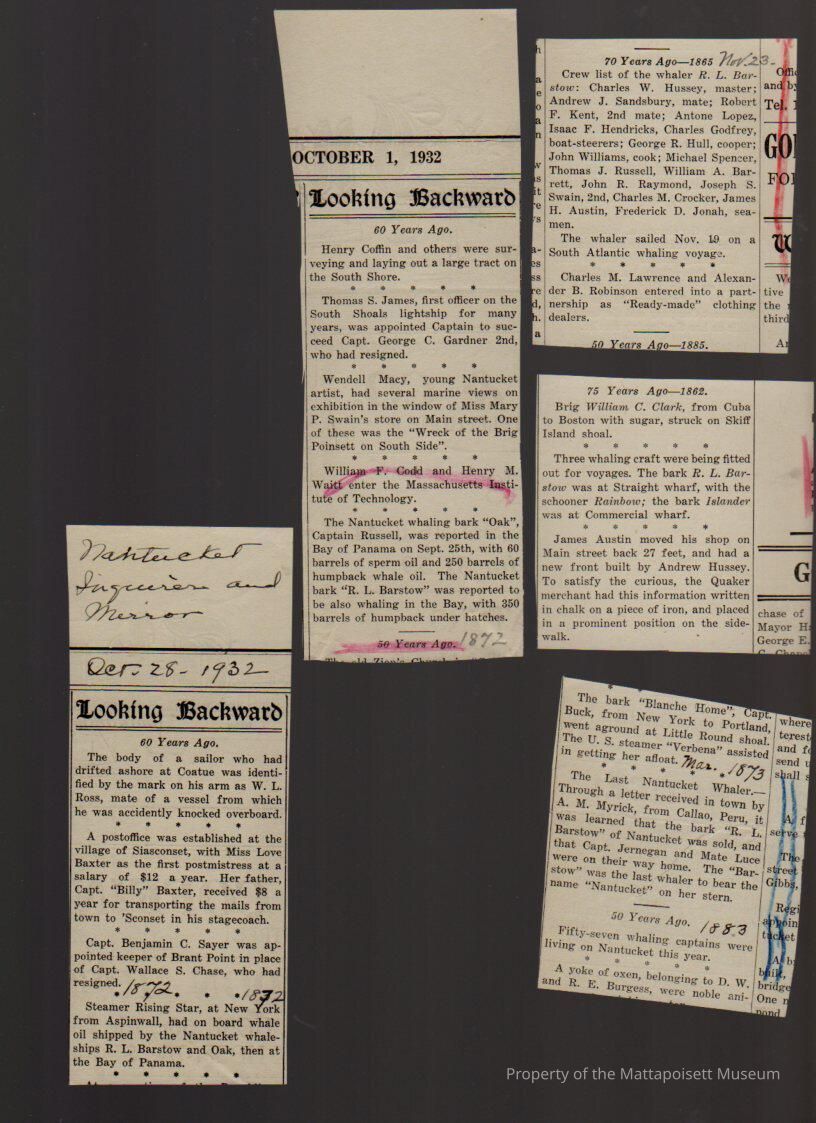 Nantucket
Inquirer and
Mirror
Oct. 28 - 1932
Looking Backward
60 Years Ago.
The body of a sailor who had
drifted ashore at Coatue was identi-
fied by the mark on his arm as W. L.
Ross, mate of a vessel from which
he was accidently knocked overboard.
* * * * *
A postoffice was established at the
village of Siasconset, with Miss Love
Baxter as the first postmistress at a
salary of $12 a year. Her father,
Capt. "Billy" Baxter, received $8 a
year for transporting the mails from
town to 'Sconset in his stagecoach.
* * * * *
Capt. Benjamin C. Sayer was ap-
pointed keeper of Brant Point in place
of Capt. Wallace S. Chase, who had
resigned.
1872. 1872
Steamer Rising Star, at New York
from Aspinwall, had on board whale
oil shipped by the Nantucket whale-
ships R. L. Barstow and Oak, then at
the Bay of Panama.
* * * * *
OCTOBER 1, 1932
Looking Backward
60 Years Ago.
Henry Coffin and others were sur-
veying and laying out a large tract on
the South Shore.
* * * * *
Thomas S. James, first officer on the
South Shoals lightship for many
years, was appointed Captain to suc-
ceed Capt. George C. Gardner 2nd,
who had resigned.
* * * * *
Wendell Macy, young Nantucket
artist, had several marine views on
exhibition in the window of Miss Mary
P. Swain's store on Main street. One
of these was the "Wreck of the Brig
Poinsett on South Side".
* * * * *
William F. Codd and Henry M.
Waitt enter the Massachusetts Insti-
tute of Technology.
* * * * *
The Nantucket whaling bark "Oak",
Captain Russell, was reported in the
Bay of Panama on Sept. 25th, with 60
barrels of sperm oil and 250 barrels of
humpback whale oil. The Nantucket
bark "R. L. Barstow" was reported to
be also whaling in the Bay, with 350
barrels of humpback under hatches.
50 Years Ago. 1872
70 Years Ago—1865 Nov. 23-
Crew list of the whaler R. L. Bar-
stow: Charles W. Hussey, master;
Andrew J. Sandsbury, mate; Robert
F. Kent, 2nd mate; Antone Lopez,
Isaac F. Hendricks, Charles Godfrey,
boat-steerers; George R. Hull, cooper;
John Williams, cook; Michael Spencer,
Thomas J. Russell, William A. Bar-
rett, John R. Raymond, Joseph S.
Swain, 2nd, Charles M. Crocker, James
H. Austin, Frederick D. Jonah, sea-
men.
The whaler sailed Nov. 19 on a
South Atlantic whaling voyage.
* * * * *
Charles M. Lawrence and Alexan-
der B. Robinson entered into a part-
nership as "Ready-made" clothing
dealers.
50 Years Ago—1885.
75 Years Ago—1862.
Brig William C. Clark, from Cuba
to Boston with sugar, struck on Skiff
Island shoal.
* * * * *
Three whaling craft were being fitted
out for voyages. The bark R. L. Bar-
stow was at Straight wharf, with the
schooner Rainbow; the bark Islander
was at Commercial wharf.
* * * * *
James Austin moved his shop on
Main street back 27 feet, and had a
new front built by Andrew Hussey.
To satisfy the curious, the Quaker
merchant had this information written
in chalk on a piece of iron, and placed
in a prominent position on the side-
walk.
chase of
George E.
The bark "Blanche Home", Capt.
Buck, from New York to Portland,
went aground at Little Round shoal.
The U. S. steamer "Verbena" assisted
in getting her afloat. Mar. 1873
* * * * *
The Last Nantucket Whaler.—
Through a letter received in town by
A. M. Myrick, from Callao, Peru, it
was learned that the bark "R. L.
Barstow" of Nantucket was sold, and
that Capt. Jernegan and Mate Luce
were on their way home. The "Bar-
stow" was the last whaler to bear the
name "Nantucket" on her stern.
50 Years Ago. 1883
Fifty-seven whaling captains were
living on Nantucket this year.
* * * * *
A yoke of oxen, belonging to D. W.
and R. E. Burgess, were noble ani-
Property of the Mattapoisett Museum